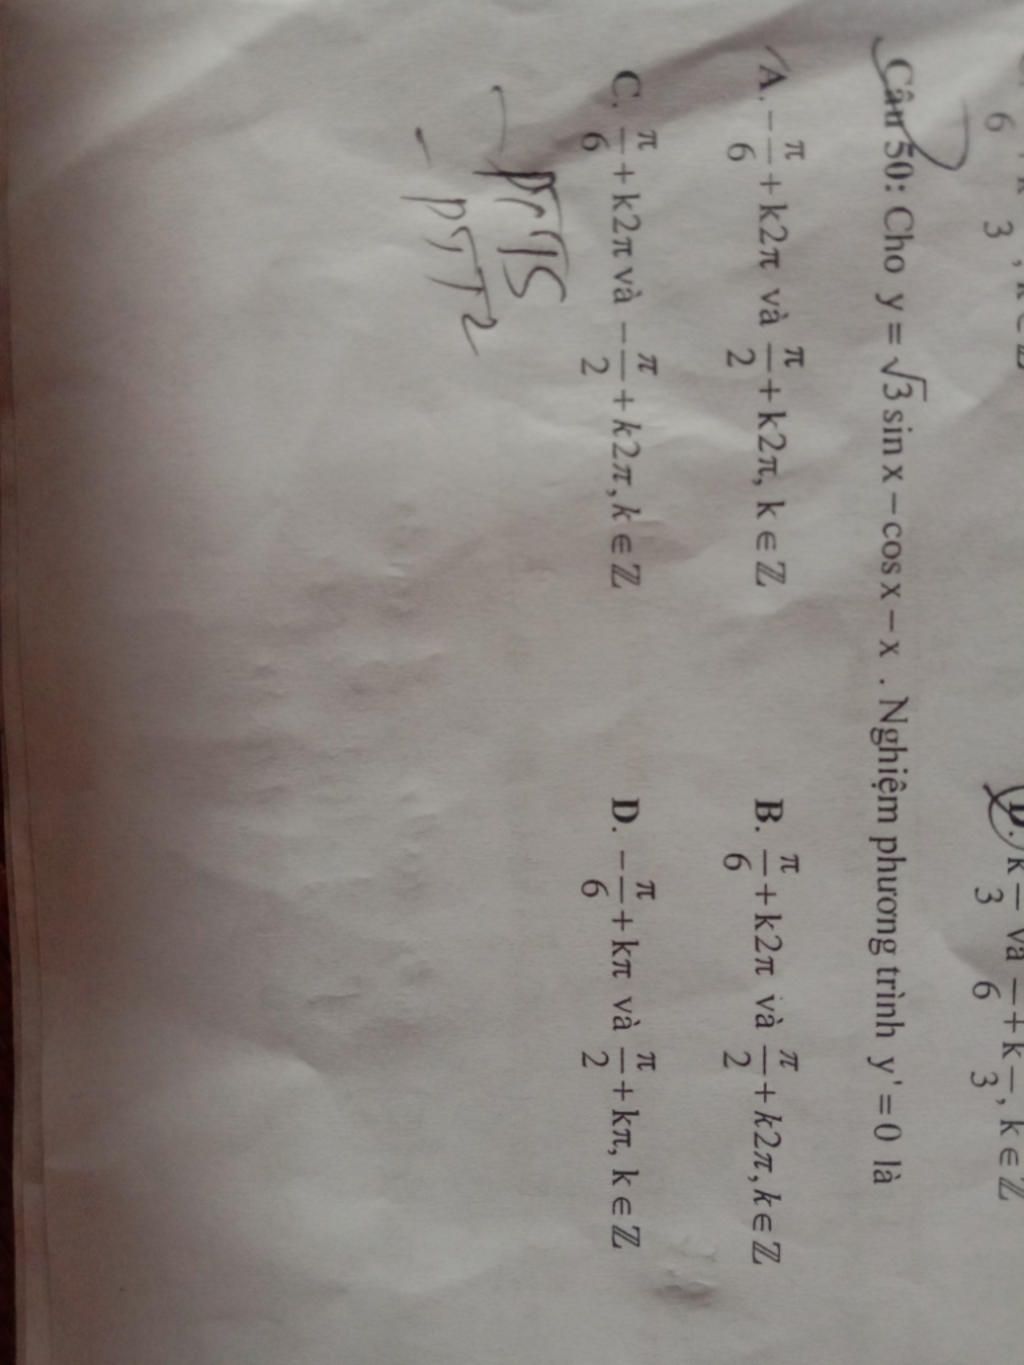 6 3
D. k π/3 và π/6 + k π/3, k ∈ ℤ
Câu 50: Cho y = √3 sin x − cos x − x . Nghiệm phương trình y' = 0 là
A. −π/6 + k2π và π/2 + k2π, k ∈ ℤ
B. π/6 + k2π và π/2 + k2π, k ∈ ℤ
C. π/6 + k2π và −π/2 + k2π, k ∈ ℤ
D. −π/6 + kπ và π/2 + kπ, k ∈ ℤ
- PTTS
- PTT2